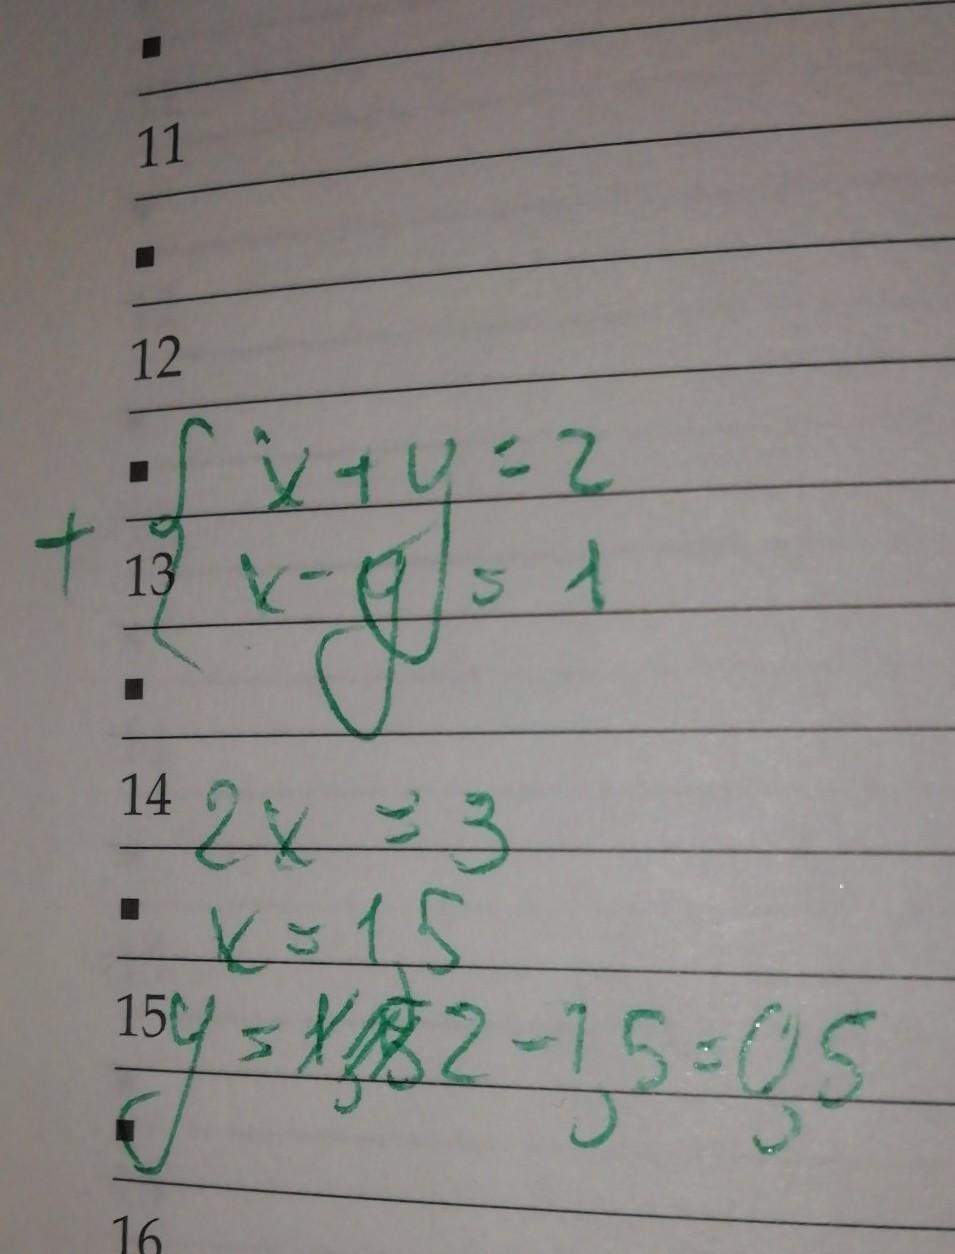 11
12
x+y=2
+ {
13 x-y=1
14 2x=3
x=1,5
15 y=2-1,5=0,5
16